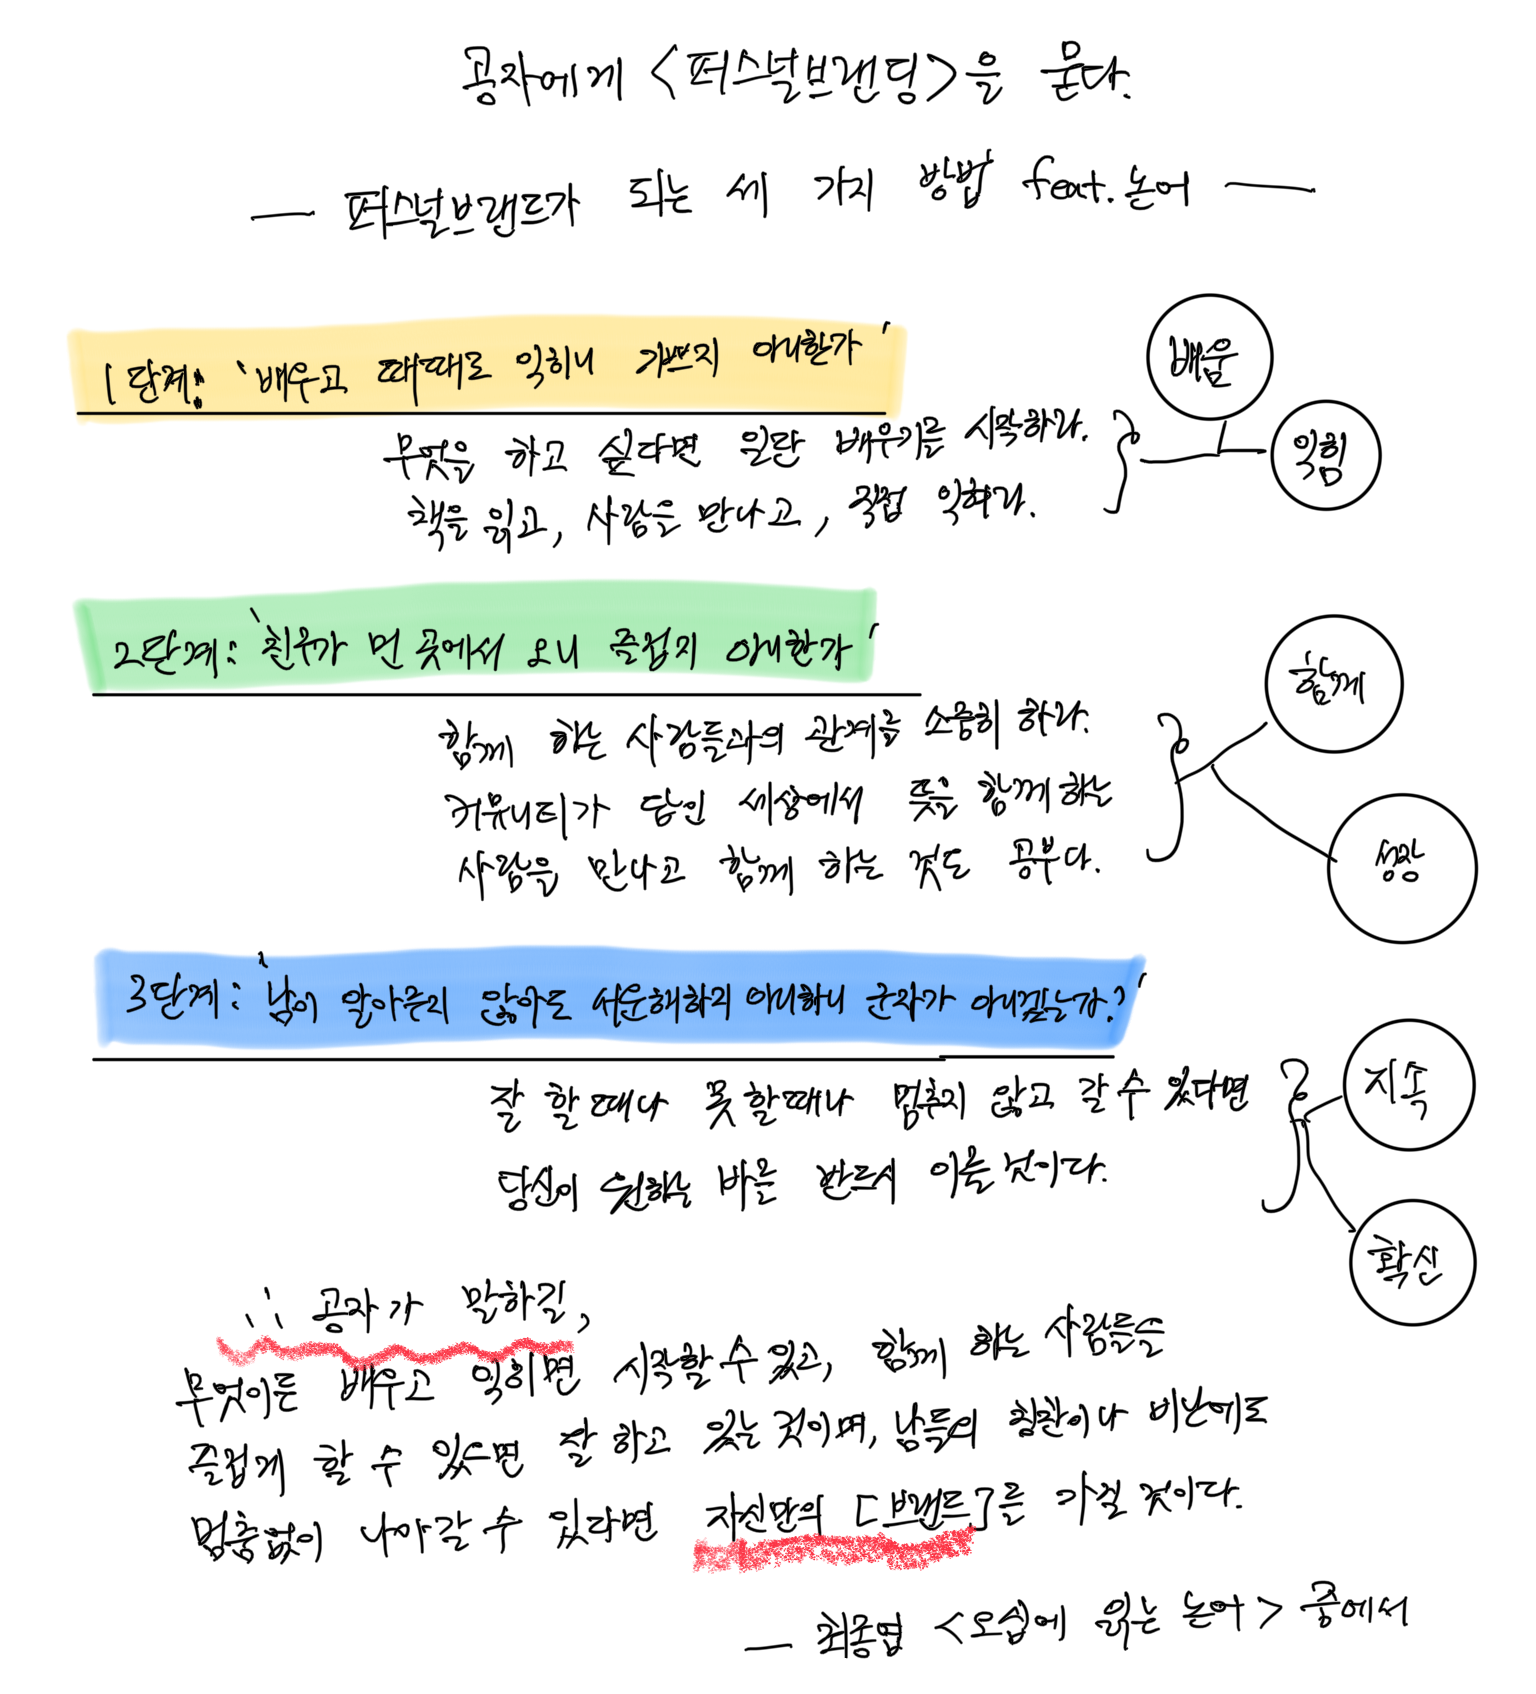 공자에게 <퍼스널브랜딩>을 묻다.
— 퍼스널브랜드가 되는 세 가지 방법 feat.논어 —
1단계: '배우고 때때로 익히니 기쁘지 아니한가'
무엇을 하고 싶다면 일단 배우기를 시작하라.
책을 읽고, 사람을 만나고, 직접 익혀라.
배움
익힘
2단계: '친구가 먼 곳에서 오니 즐겁지 아니한가'
함께 하는 사람들과의 관계를 소중히 하라.
커뮤니티가 답인 세상에서 뜻을 함께하는
사람을 만나고 함께 하는 것도 공부다.
함께
성장
3단계: '남이 알아주지 않아도 서운해하지 아니하니 군자가 아니겠는가?'
잘 할때나 못할때나 멈추지 않고 갈 수 있다면
당신이 원하는 바를 반드시 이룰 것이다.
지속
확신
∴ 공자가 말하길,
무엇이든 배우고 익히면 시작할 수 있고, 함께 하는 사람들을
즐겁게 할 수 있으면 잘 하고 있는 것이며, 남들의 칭찬이나 비난에도
멈춤없이 나아갈 수 있다면 자신만의 [브랜드]를 가질 것이다.
— 최종엽 <오십에 읽는 논어> 중에서